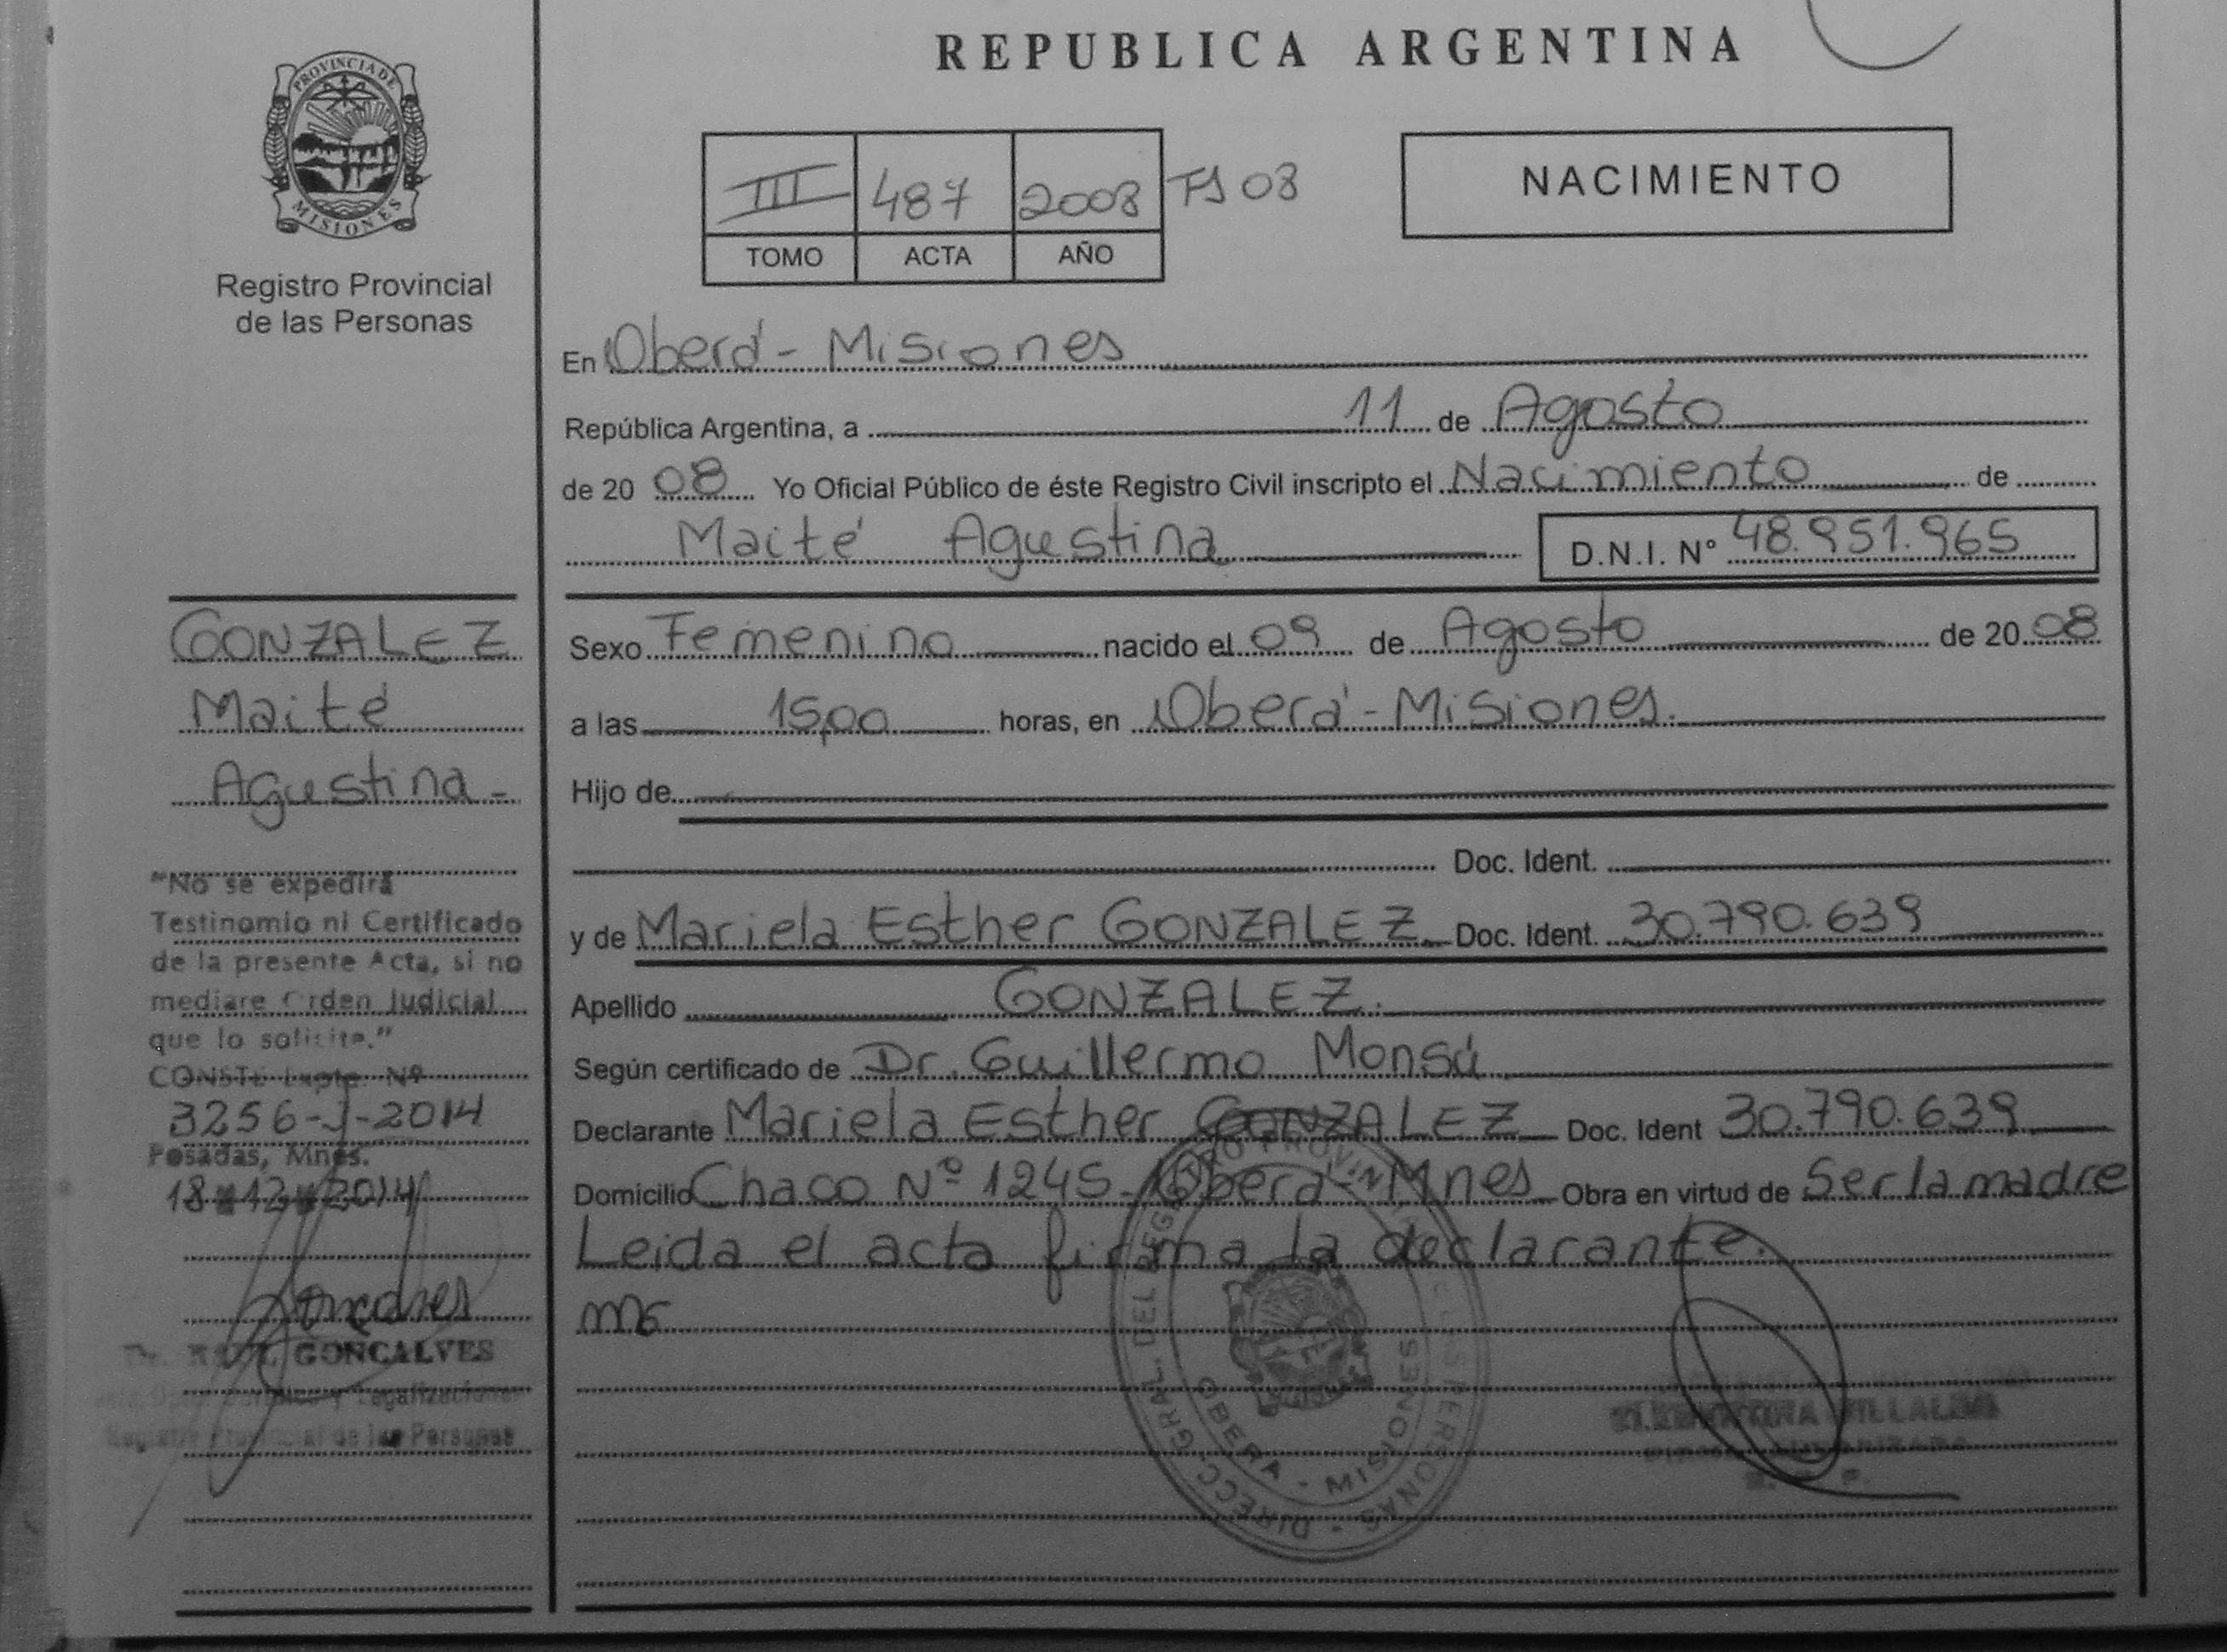 REPUBLICA ARGENTINA
PROVINCIA DE
MISIONES
Registro Provincial
de las Personas
III 487 2008 FJ 08
TOMO ACTA AÑO
NACIMIENTO
En Oberá - Misiones
República Argentina, a 11 de Agosto
de 20 08 Yo Oficial Público de éste Registro Civil inscripto el Nacimiento de
Maité Agustina D.N.I. N° 48.951.965
Sexo Femenino nacido el 09 de Agosto de 20 08
a las 15,00 horas, en Oberá - Misiones.
Hijo de
Doc. Ident.
y de Mariela Esther GONZALEZ Doc. Ident. 30.790.639
Apellido GONZALEZ.
Según certificado de Dr. Guillermo Monsú
Declarante Mariela Esther GONZALEZ Doc. Ident 30.790.639
Domicilio Chaco Nº 1245 - Oberá - Mnes Obra en virtud de Ser la madre
Leida el acta firma la declarante.
GONZALEZ
Maité
Agustina -
"No se expedirá
Testinomio ni Certificado
de la presente Acta, si no
mediare Orden Judicial
que lo solicite."
CONSTE Expte. Nº
3256-J-2014
Posadas, Mnes.
18 12 2014
GONCALVES
y Legalizaciones
Registro Provincial de las Personas
DIRECC. GRAL. DEL REGISTRO PROVIN
PERSONAS
OBERA - MISIONES
VILLALBA